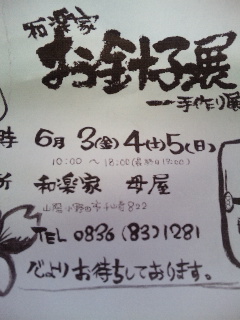 和楽家
お針好展
一手作り展
時 6月3(金)4(土)5(日)
10:00 〜 18:00(最終日17:00)
所 和楽家 母屋
山陽小野田市
822
TEL 0836(83)1281
心よりお待ちしております。